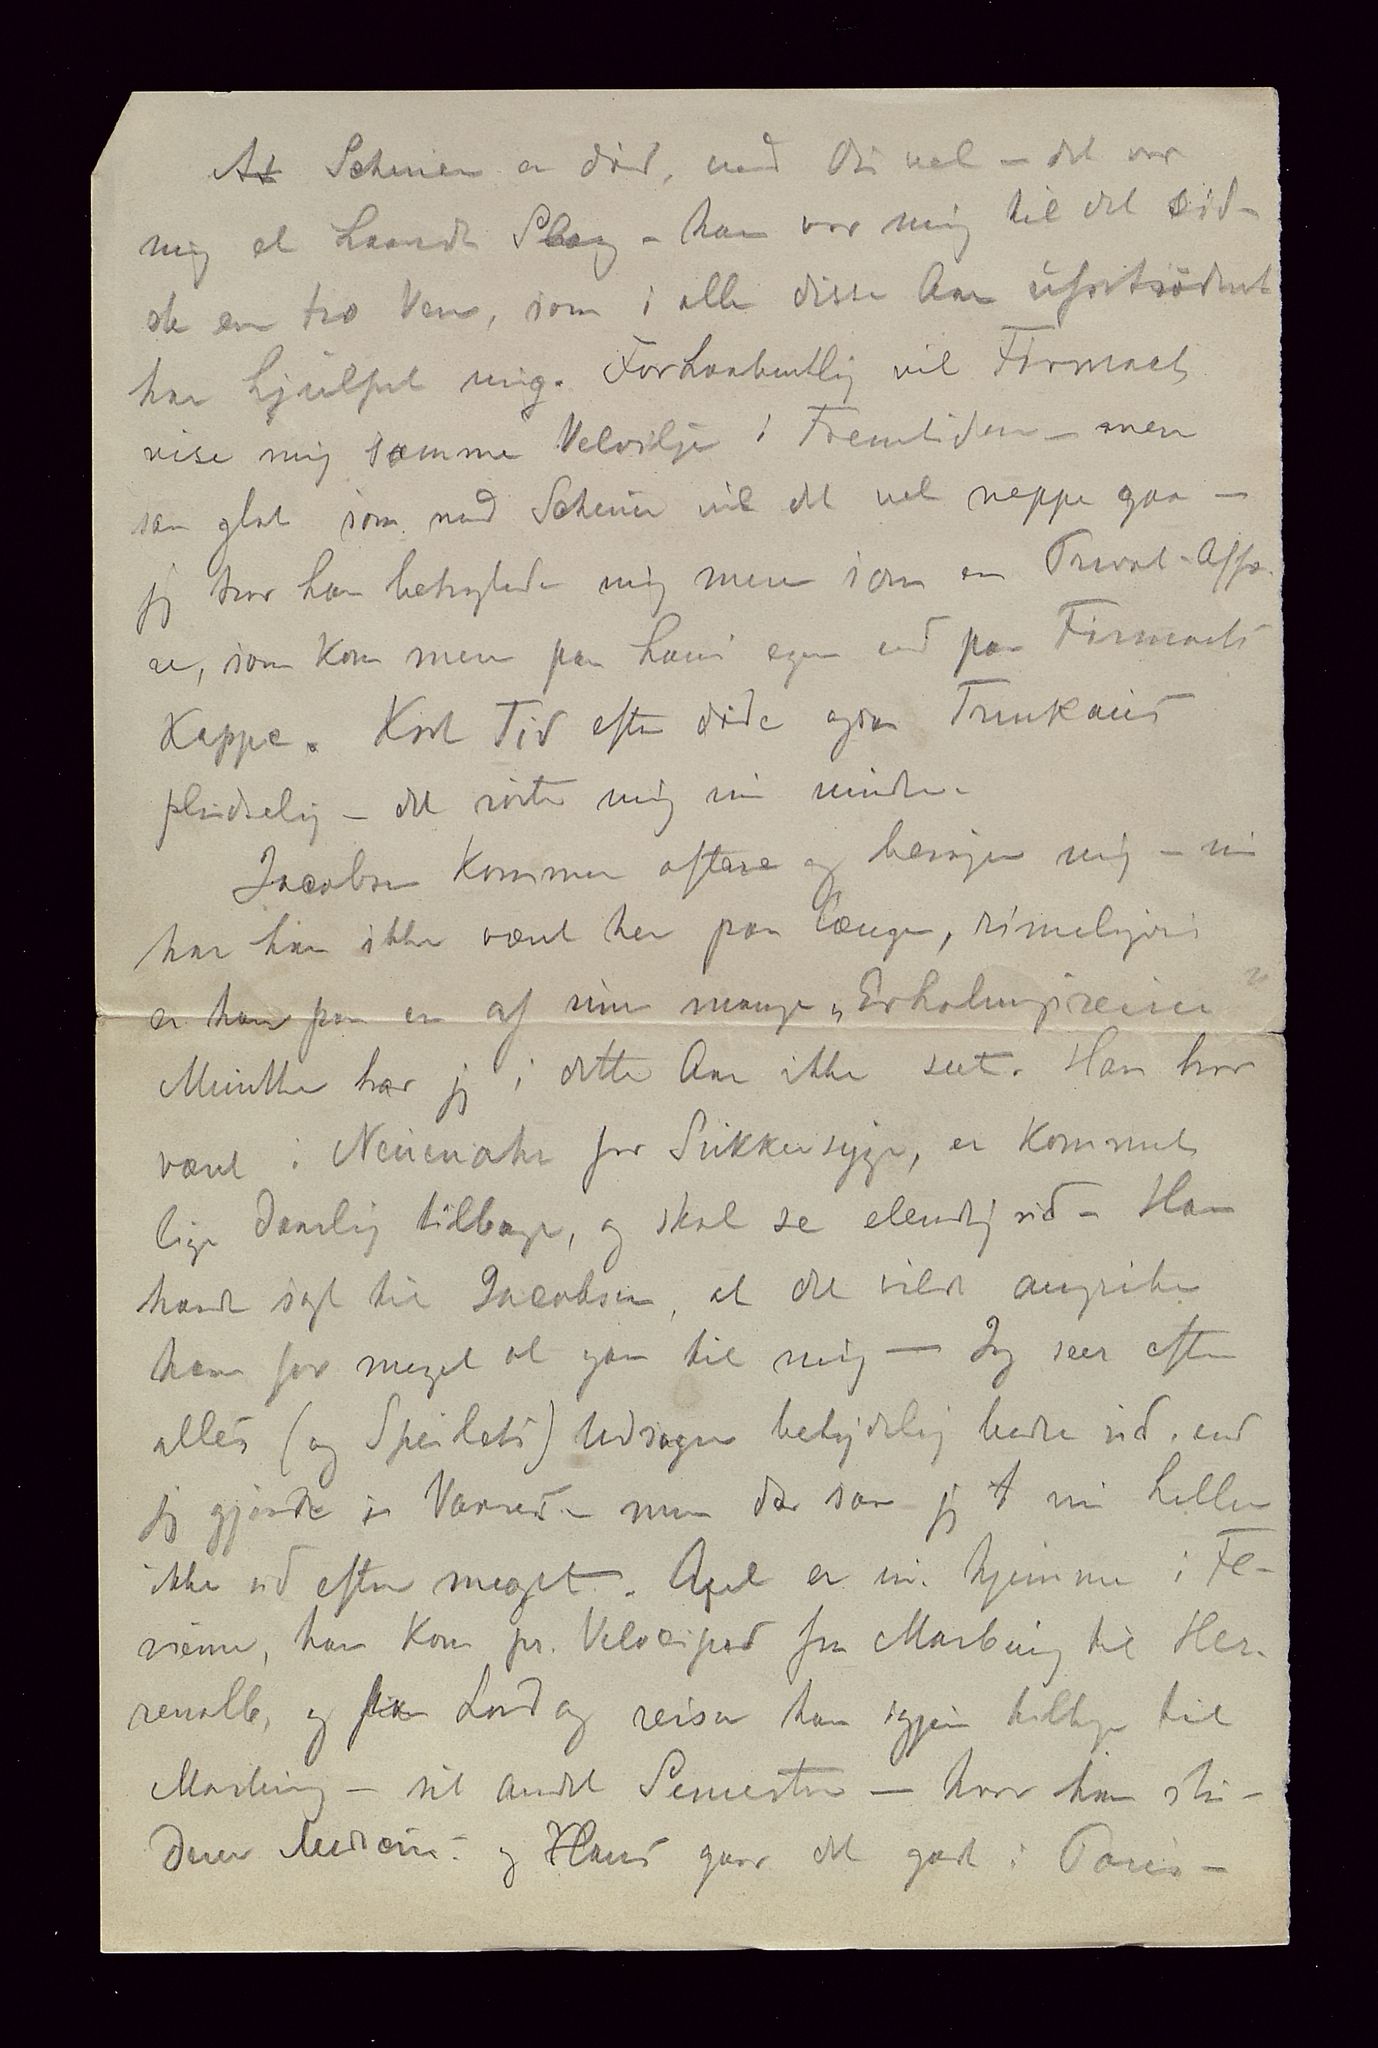 At Scheuer er død, ved Du vel – det var
mig et haardt Slag – han var mig til det sid-
ste en tro Ven, som i alle disse Aar ufortrødent
har hjulpet mig. Forhaabentlig vil Firmaet
vise mig samme Velvilje i Fremtiden – men
saa glat som med Scheuer vil det vel neppe gaa –
jeg tror han betragtede mig mere som en Privat-Affæ-
re, som kom mere paa hans egen end paa Firmaets
Kappe. Kort Tid efter døde ogsaa
pludselig – det rørte mig nu mindre.
Jacobsen kommer oftere og besøger mig – nu
har han ikke været her paa længe, rimeligvis
er han paa en af sine mange „Erholungsreisen"
Munthe har jeg i dette Aar ikke seet. Han har
været i Neuenahr for Sukkersyge, er kommet
lige daarlig tilbage, og skal se elendig ud – Han
havde sagt til Jacobsen, at det vilde angribe
ham for meget at gaa til mig – Jeg seer efter
alles (og Speilets) Udsagn betydelig bedre ud, end
jeg gjorde i Vaares – men da saa jeg nu heller
ikke ud efter meget. Axel er nu hjemme i Fe-
rierne, han kom pr. Velociped fra Marburg til Her-
renalb, og paa Lørdag reiser han igjen tilbage til
Marburg – sit andet Semester – hvor han stu-
derer Medicin – og Hans gaar det godt i Paris –